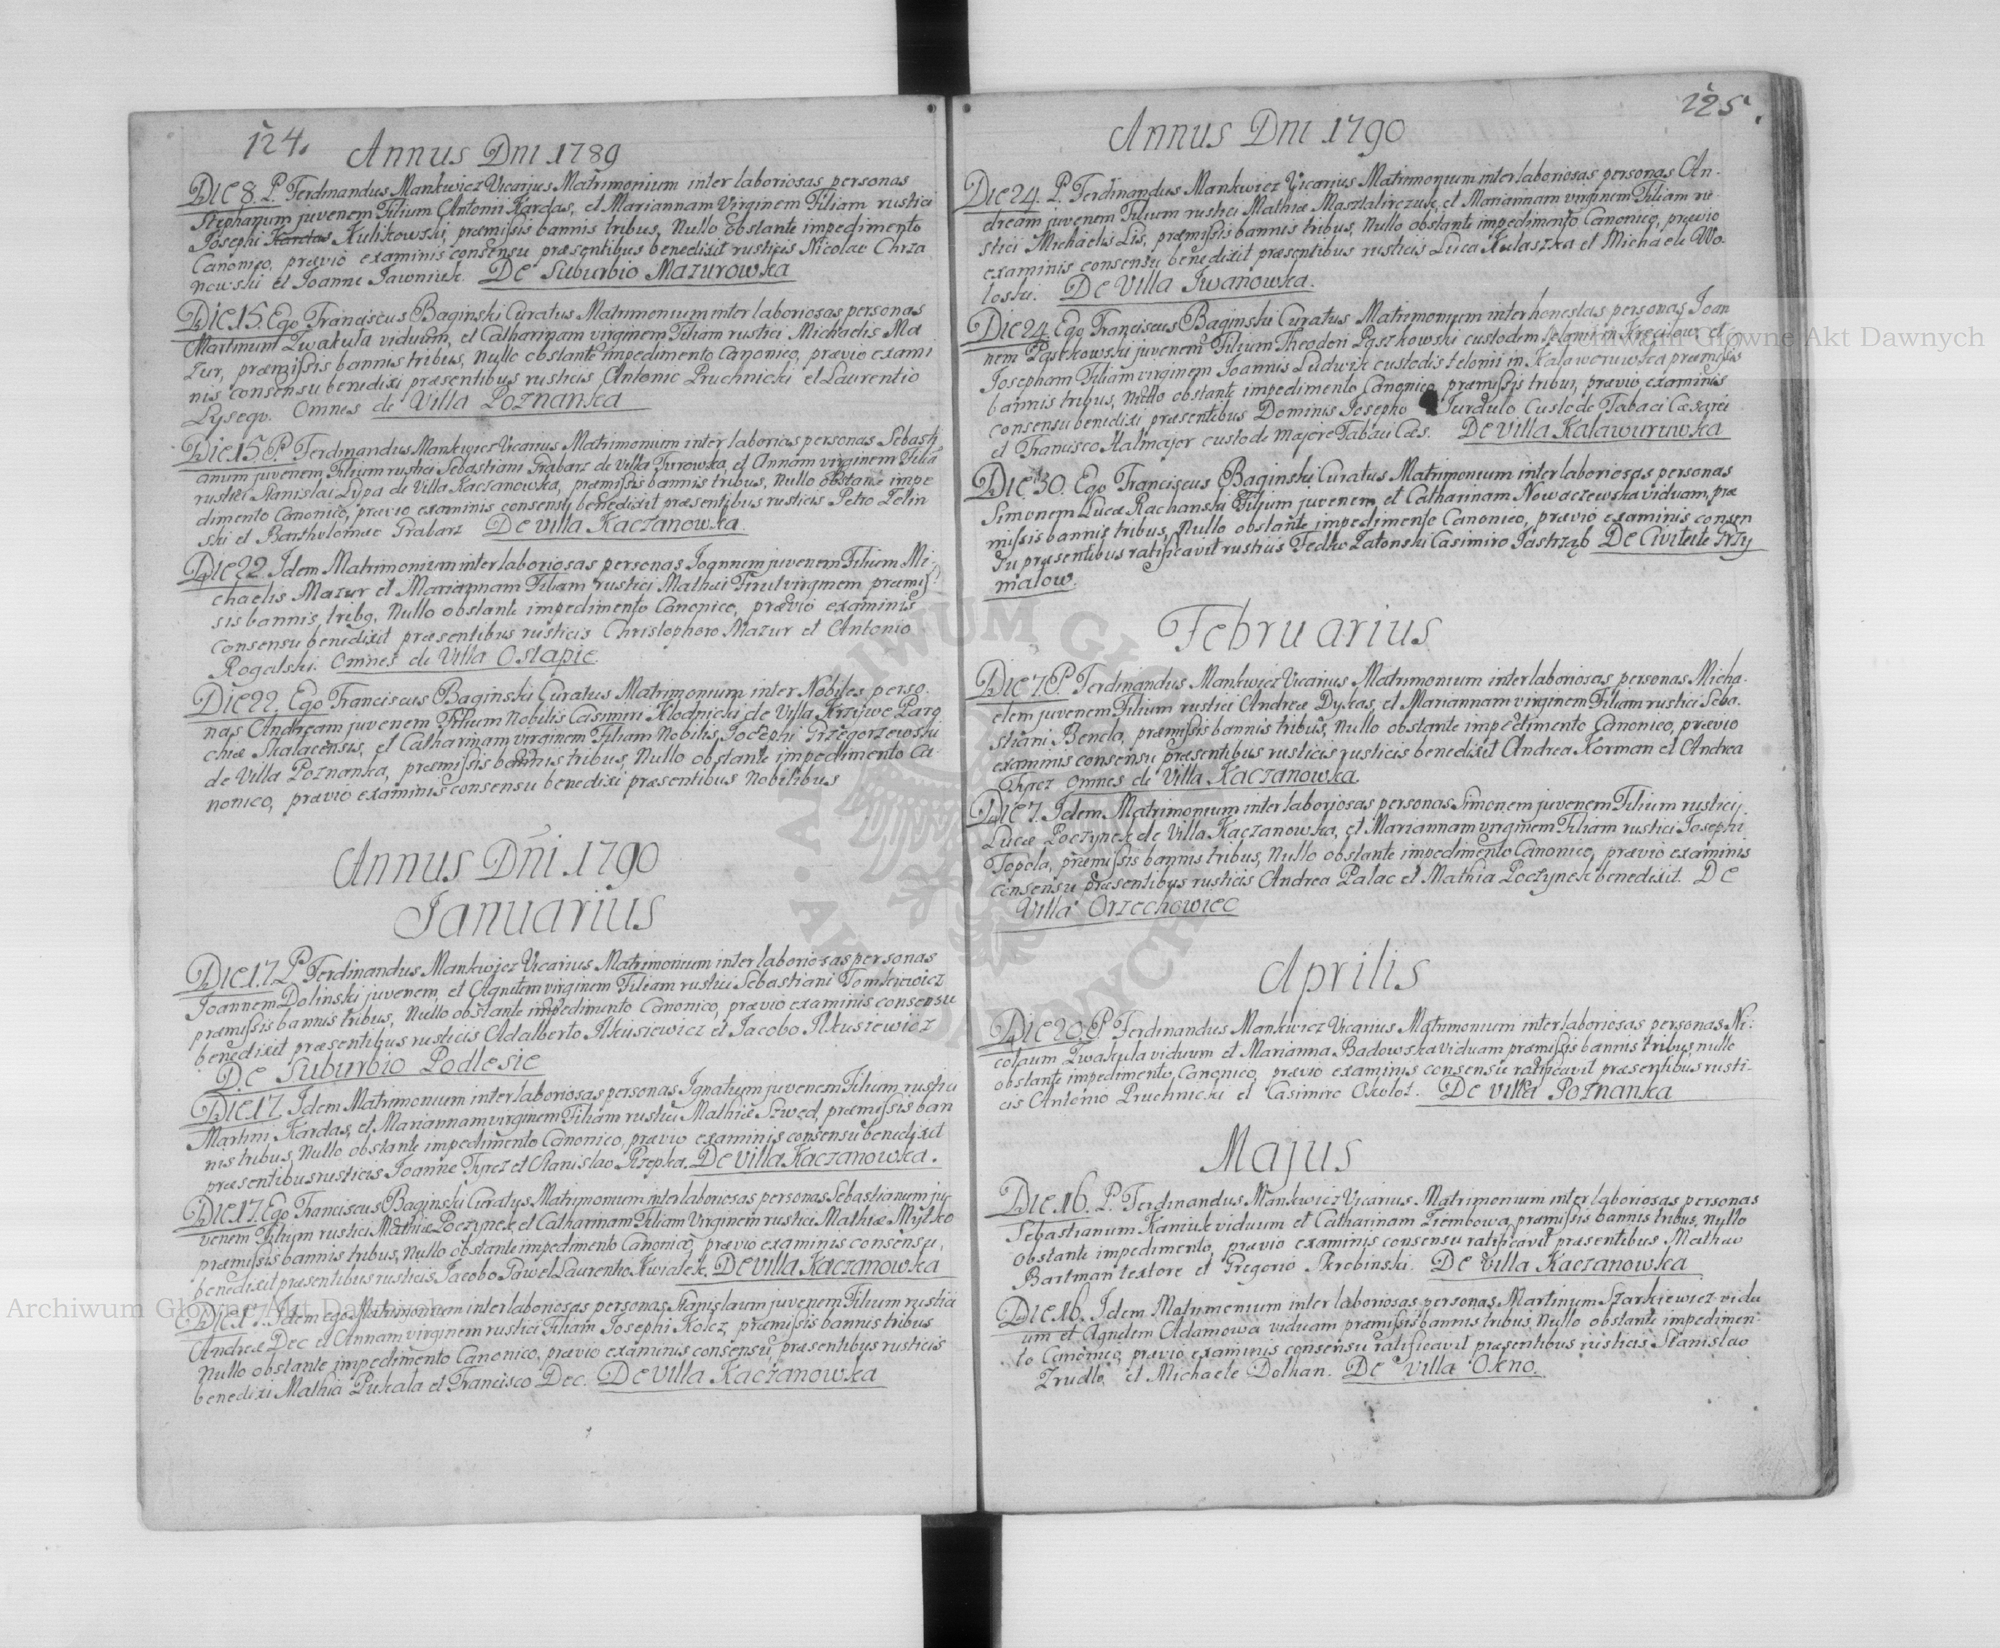 124.
Annus Dni 1789
Die 8. P. Ferdinandus Mankwicz Vicarius Matrimonium inter laboriosas personas
Stephanum juvenem Filium Antonii Kardas, et Mariannam Virginem Filiam rustici
Josephi Kardas Kulikowski, præmissis bannis tribus, Nullo obstante impedimento
Canonico, prævio examinis consensu præsentibus benedixit rusticis Nicolao Chrza
nowski et Joanne Jawniuk. De Suburbio Mazurowka
Die 15. Ego Franciscus Baginski Curatus Matrimonium inter laboriosas personas
Martinum Zwakula viduum, et Catharinam virginem Filiam rustici Michaelis Ma
zur, præmissis bannis tribus, nullo obstante impedimento Canonico, prævio exami
nis consensu benedixi præsentibus rusticis Antonio Pruchnicki et Laurentio
Omnes de Villa Poznanka
Die 15. P. Ferdinandus Mankwicz Vicarius Matrimonium inter laborias personas Sebasti
anum juvenem Filium rustici Sebastiani Grabarz de Villa Turowka, et Annam virginem Filia
rustici Stanislai Lypa de Villa Kaczanowka, præmissis bannis tribus, Nullo obstante impe
dimento Canonico, prævio examinis consensu benedixit præsentibus rusticis Petro Zelin
ski et Bartholomeo Grabarz De Villa Kaczanowka.
Die 22. Idem Matrimonium inter laboriosas personas Joannem juvenem Filium Mi-
chaelis Mazur et Mariannam Filiam rustici Mathæi virginem præmis
sis bannis, tribq, Nullo obstante impedimento Canonico, prævio examinis
consensu benedixit præsentibus rusticis Christophoro Mazur et Antonio
Rogalski. Omnes de Villa Ostapie.
Die 22. Ego Franciscus Baginski Curatus Matrimonium inter Nobiles perso-
nas Andream juvenem Filium Nobilis Casimiri Klodnicki de Villa Krzywe Paro
chiæ Skalacensis, et Catharinam virginem Filiam Nobilis Josephi Grzegorzewski
de Villa Poznanka, præmissis bannis tribus, Nullo obstante impedimento Ca
nonico, prævio examinis consensu benedixi præsentibus Nobilibus
Annus Dni 1790
Januarius
Die 17. P. Ferdinandus Mankwicz Vicarius Matrimonium inter laboriosas personas
Joannem Dolinski juvenem, et Agnetem virginem Filiam rustici Sebastiani Tomkiewicz
præmissis bannis tribus, Nullo obstante impedimento Canonico, prævio examinis consensu
benedixit præsentibus rusticis Adalberto Ilkusiewicz et Jacobo Ilkusiewicz
De Suburbio Podlesie
Die 17. Idem Matrimonium inter laboriosas personas Ignatium juvenem Filium rustici
Martini Kardas, et Mariannam virginem Filiam rustici Mathiæ Szwed, præmissis ban
nis tribus, Nullo obstante impedimento Canonico, prævio examinis consensu benedixit
præsentibus rusticis Joanne Tyrcz et Stanislao Rzepka. De Villa Kaczanowka.
Die 17. Ego Franciscus Baginski Curatus Matrimonium inter laboriosas personas Sebastianum ju
venem Filium rustici Mathiæ Poczynek, et Catharinam Filiam Virginem rustici Mathiæ Mysko
præmissis bannis tribus, Nullo obstante impedimento Canonico, prævio examinis consensu,
benedixit præsentibus rusticis Jacobo Pawel Laurentio Kwiatek. De Villa Kaczanowka
Die 17. Idem ego Matrimonium inter laboriosas personas Stanislaum juvenem Filium rustici
Andreæ Dec et Annam virginem rustici Filiam Josephi Kolcz, præmissis bannis tribus
Nullo obstante impedimento Canonico, prævio examinis consensu, præsentibus rusticis
benedixi Mathia Pukala et Francisco Dec. De Villa Kaczanowka
125.
Annus Dni 1790
Die 24. P. Ferdinandus Mankwicz Vicarius Matrimonium inter laboriosas personas An-
dream juvenem Filium rustici Mathiæ Masztalirczuk, et Mariannam virginem Filiam ru-
stici Michaelis Lis, præmissis bannis tribus, Nullo obstante impedimento Canonico, prævio
examinis consensu benedixit præsentibus rusticis Luca Kulaszka et Michaele Wo-
loski. De Villa Iwanowka.
Die 24. Ego Franciscus Baginski Curatus Matrimonium inter honestas personas Joan
nem Paszkowski juvenem Filium Theodori Paszkowski custodem et
Josepham Filiam virginem Joannis Ludwik custodis telonii in Kalaweruwka præmissis
bannis tribus, Nullo obstante impedimento Canonico, præmissis tribus, prævio examinis
consensu benedixi præsentibus Dominis Josepho Jurdulo Custode Tabaci Cæsarei
et Francisco Halmajor custode majore Tabaci Cæs. De Villa Kalawuruwka
Die 30. Ego Franciscus Baginski Curatus Matrimonium inter laboriosas personas
Simonem Lucæ Rachanski Filium juvenem et Catharinam Nowaczewska viduam, præ
missis bannis tribus, Nullo obstante impedimento Canonico, prævio examinis consen
su præsentibus ratificavit rusticis Fedko Zatonski Casimiro Jastrząb De Civitate Grzy
malow.
Februarius
Die 7. P. Ferdinandus Mankwicz Vicarius Matrimonium inter laboriosas personas Micha-
elem juvenem Filium rustici Andreæ Dykas, et Mariannam virginem Filiam rustici Seba-
stiani Benela, præmissis bannis tribus, Nullo obstante impedimento Canonico, prævio
examinis consensu præsentibus rusticis rusticis benedixit Andrea Korman et Andrea
Tyrcz Omnes de Villa Kaczanowka.
Die 7. Idem Matrimonium inter laboriosas personas Simonem juvenem Filium rustici
Lucæ Poczynek de Villa Kaczanowka, et Mariannam virginem Filiam rustici Josephi
Topola, præmissis bannis tribus, Nullo obstante impedimento Canonico, prævio examinis
consensu præsentibus rusticis Andrea Palac et Mathia Poczynek benedixit. De
Villa Orzechowiec
Aprilis
Die 20. P. Ferdinandus Mankwicz Vicarius Matrimonium inter laboriosas personas Ni-
colaum Zwakula viduum et Marianna Badowska viduam præmissis bannis tribus, nullo
obstante impedimento Canonico, prævio examinis consensu ratificavit præsentibus rusti-
cis Antonio Pruchnicki et Casimiro Okolot. De Villa Poznanka
Majus
Die 16. P. Ferdinandus Mankwicz Vicarius. Matrimonium inter laboriosas personas
Sebastianum Kaniuk viduum et Catharinam Ziembowa, præmissis bannis tribus, Nullo
obstante impedimento, prævio examinis consensu ratificavit præsentibus Mathæo
Bartman textore et Gregorio Skrobinski. De Villa Kaczanowka
Die 16. Idem Matrimonium inter laboriosas personas Martinum Szarkiewicz vidu
um et Agnetem Adamowa viduam præmissis bannis tribus, Nullo obstante impedimen-
to Canonico, prævio examinis consensu ratificavit præsentibus rusticis Stanislao
Zrudlo et Michaele Dolhan. De Villa Okno.
Archiwum Główne Akt Dawnych
Archiwum Główne Akt Dawnych
ARCHIWUM GŁÓWNE AKT DAWNYCH